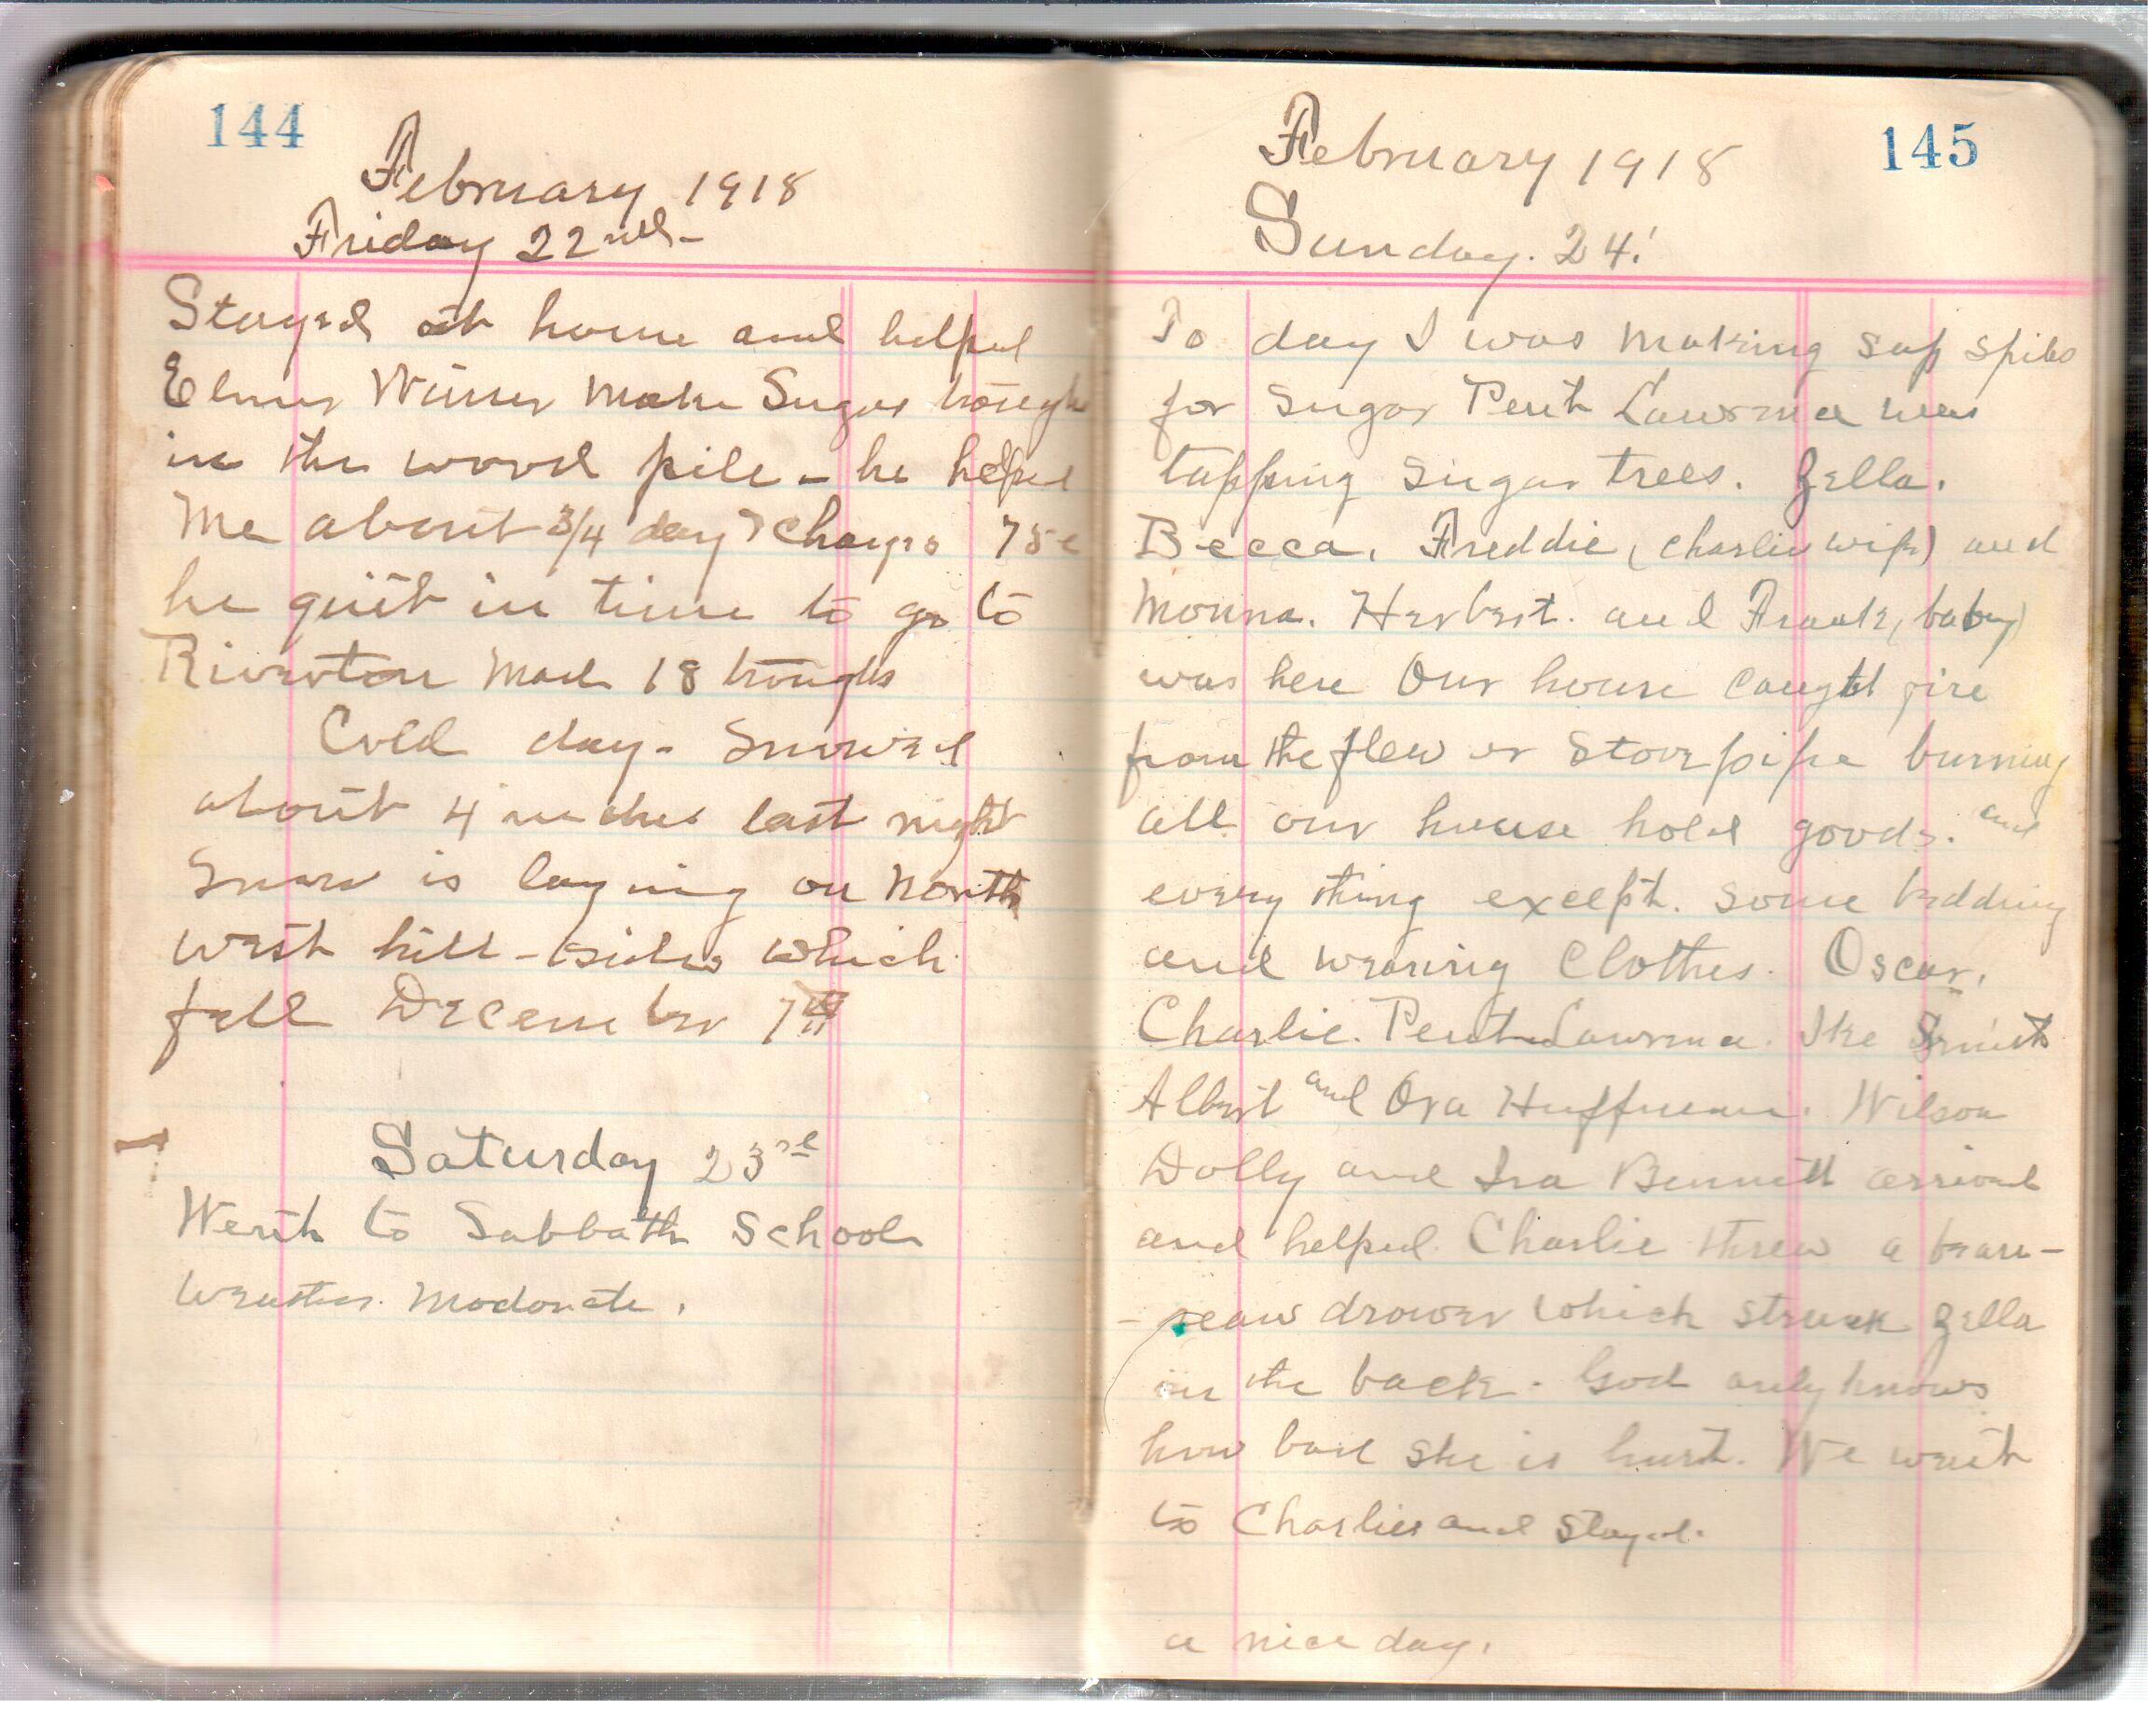 144
February 1918
Friday 22nd-
Stayed at home and helped
Elmer Winer make Sugar trough
in the wood pile - he helped
Me about 3/4 day charges 75c
he quit in time to go to
Riverton Made 18 troughs
Cold day - Snowed
about 4 inches last night
Snow is laying on North
west hill-sides which
fell December 7th
Saturday 23rd
Went to Sabbath School
Weather. Moderate.
145
February 1918
Sunday. 24!
To day I was making sap spiles
for Sugar Pent Lawrence was
tapping sugar trees. Zella.
Becca. Freddie (Charlie wife) and
Morina. Herbert. and Frank (baby)
was here Our house caught fire
from the flew or stovepipe burning
all our house hold goods. and
every thing except. some bedding
and wearing clothes. Oscar.
Charlie. Pent Lawrence. Ike
Albert and Ora Huffman. Wilson
Dolly and Ira Bennett arrived
and helped Charlie threw a beaur-
-reaw drower which struck Zella
in the back. God only knows
how bad she is hurt. We went
to Charlies and stayed.
a nice day.